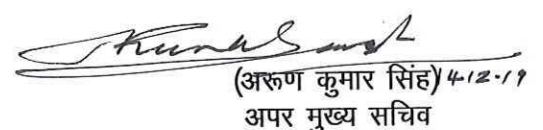 (अरूण कुमार सिंह) 4.12.19
अपर मुख्य सचिव